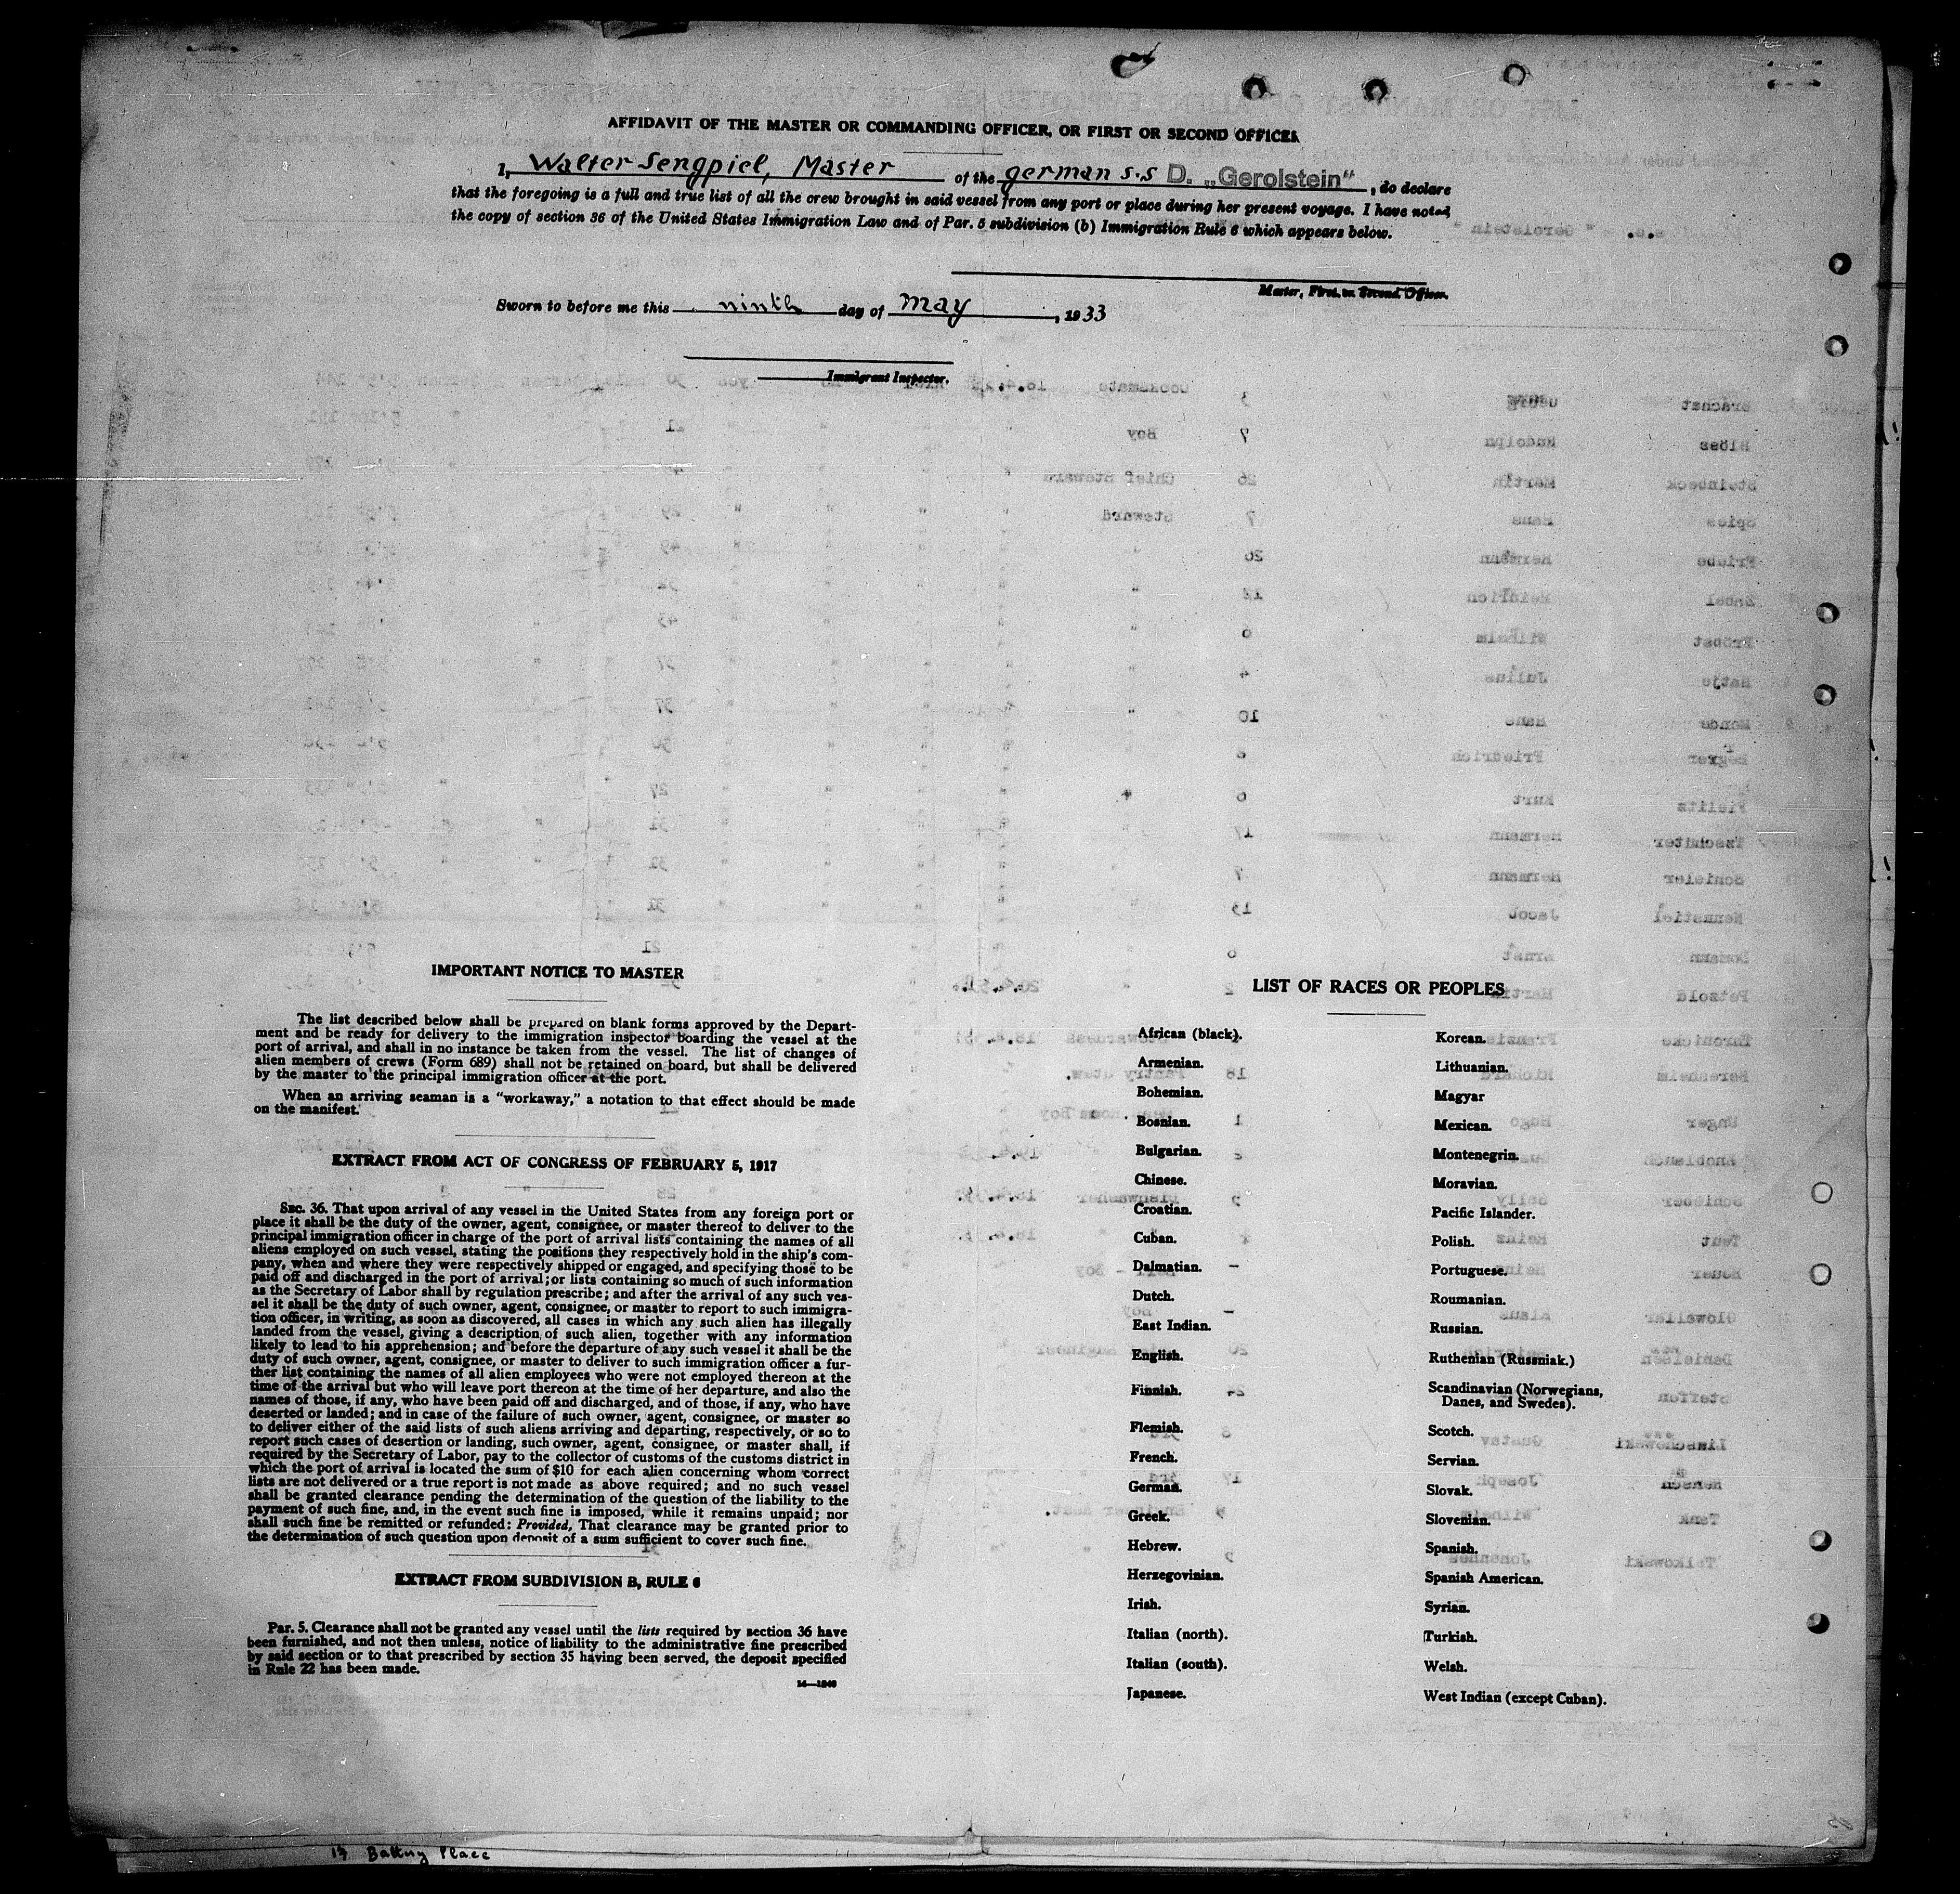 AFFIDAVIT OF THE MASTER OR COMMANDING OFFICER, OR FIRST OR SECOND OFFICER
I, Walter Sengpiel, Master of the german s.s D. „Gerolstein“, do declare
that the foregoing is a full and true list of all the crew brought in said vessel from any port or place during her present voyage. I have noted
the copy of section 36 of the United States Immigration Law and of Par. 5 subdivision (b) Immigration Rule 6 which appears below.
Master, First, or Second Officer.
Sworn to before me this ninth day of May, 1933
Immigrant Inspector.
IMPORTANT NOTICE TO MASTER
The list described below shall be prepared on blank forms approved by the Depart-
ment and be ready for delivery to the immigration inspector boarding the vessel at the
port of arrival, and shall in no instance be taken from the vessel. The list of changes of
alien members of crews (Form 689) shall not be retained on board, but shall be delivered
by the master to the principal immigration officer at the port.
When an arriving seaman is a “workaway,” a notation to that effect should be made
on the manifest.
EXTRACT FROM ACT OF CONGRESS OF FEBRUARY 5, 1917
SEC. 36. That upon arrival of any vessel in the United States from any foreign port or
place it shall be the duty of the owner, agent, consignee, or master thereof to deliver to the
principal immigration officer in charge of the port of arrival lists containing the names of all
aliens employed on such vessel, stating the positions they respectively hold in the ship's com-
pany, when and where they were respectively shipped or engaged, and specifying those to be
paid off and discharged in the port of arrival; or lists containing so much of such information
as the Secretary of Labor shall by regulation prescribe; and after the arrival of any such ves-
sel it shall be the duty of such owner, agent, consignee, or master to report to such immigra-
tion officer, in writing, as soon as discovered, all cases in which any such alien has illegally
landed from the vessel, giving a description of such alien, together with any information
likely to lead to his apprehension; and before the departure of any such vessel it shall be the
duty of such owner, agent, consignee, or master to deliver to such immigration officer a fur-
ther list containing the names of all alien employees who were not employed thereon at the
time of the arrival but who will leave port thereon at the time of her departure, and also the
names of those, if any, who have been paid off and discharged, and of those, if any, who have
deserted or landed; and in case of the failure of such owner, agent, consignee, or master so
to deliver either of the said lists of such aliens arriving and departing, respectively, or so to
report such cases of desertion or landing, such owner, agent, consignee, or master shall, if
required by the Secretary of Labor, pay to the collector of customs of the customs district in
which the port of arrival is located the sum of $10 for each alien concerning whom correct
lists are not delivered or a true report is not made as above required; and no such vessel
shall be granted clearance pending the determination of the question of the liability to the
payment of such fine, and, in the event such fine is imposed, while it remains unpaid; nor
shall such fine be remitted or refunded: Provided, That clearance may be granted prior to
the determination of such question upon deposit of a sum sufficient to cover such fine.
EXTRACT FROM SUBDIVISION B, RULE 6
Par. 5. Clearance shall not be granted any vessel until the lists required by section 36 have
been furnished, and not then unless, notice of liability to the administrative fine prescribed
by said section or to that prescribed by section 35 having been served, the deposit specified
in Rule 22 has been made.
14—1240
LIST OF RACES OR PEOPLES
African (black).
Armenian.
Bohemian.
Bosnian.
Bulgarian.
Chinese.
Croatian.
Cuban.
Dalmatian.
Dutch.
East Indian.
English.
Finnish.
Flemish.
French.
German.
Greek.
Hebrew.
Herzegovinian.
Irish.
Italian (north).
Italian (south).
Japanese.
Korean.
Lithuanian.
Magyar
Mexican.
Montenegrin.
Moravian.
Pacific Islander.
Polish.
Portuguese.
Roumanian.
Russian.
Ruthenian (Russniak.)
Scandinavian (Norwegians,
Danes, and Swedes).
Scotch.
Servian.
Slovak.
Slovenian.
Spanish.
Spanish American.
Syrian.
Turkish.
Welsh.
West Indian (except Cuban).
17 Battery Place